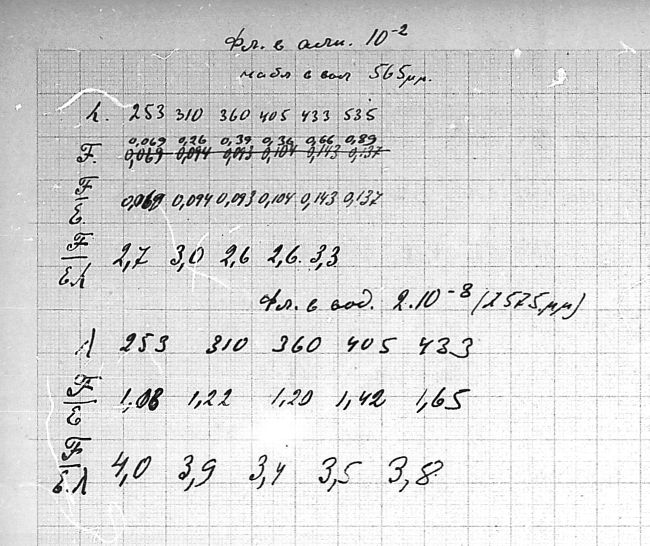 Фл. в алк. 10⁻²
набл в вол 565 μμ.
λ. 253 310 360 405 433 535
0,069 0,26 0,39 0,36 0,66 0,89
F. 0,069 0,094 0,093 0,104 0,143 0,137
F/E 0,069 0,094 0,093 0,104 0,143 0,137
F/Eλ 2,7 3,0 2,6 2,6 3,3
Фл. в вод. 2.10⁻⁸ (2575 μμ)
λ 253 310 360 405 433
F/E 1,08 1,22 1,20 1,42 1,65
F/E.λ 4,0 3,9 3,4 3,5 3,8